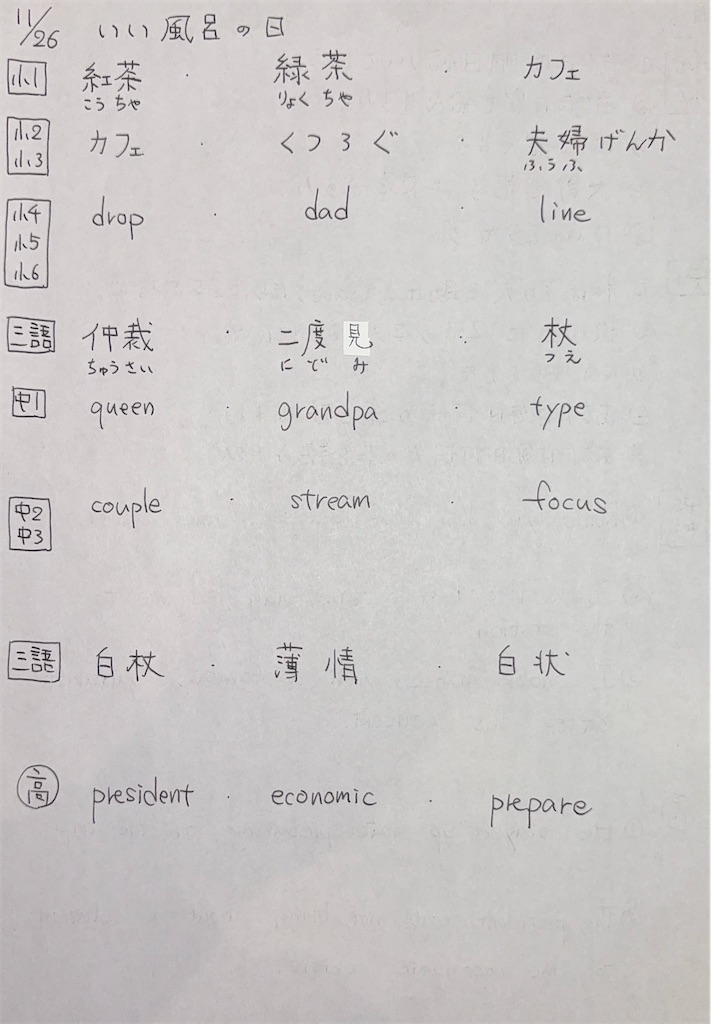 11/26 いい風呂の日
小1 紅茶 ・ 緑茶 ・ カフェ
こうちゃ りょくちゃ
小2 カフェ ・ くつろぐ ・ 夫婦げんか
小3 ふうふ
小4 drop ・ dad ・ line
小5
小6
三語 仲裁 ・ 二度見 ・ 杖
ちゅうさい にどみ つえ
中1 queen ・ grandpa ・ type
中2 couple ・ stream ・ focus
中3
三語 白杖 ・ 薄情 ・ 白状
高 president ・ economic ・ prepare